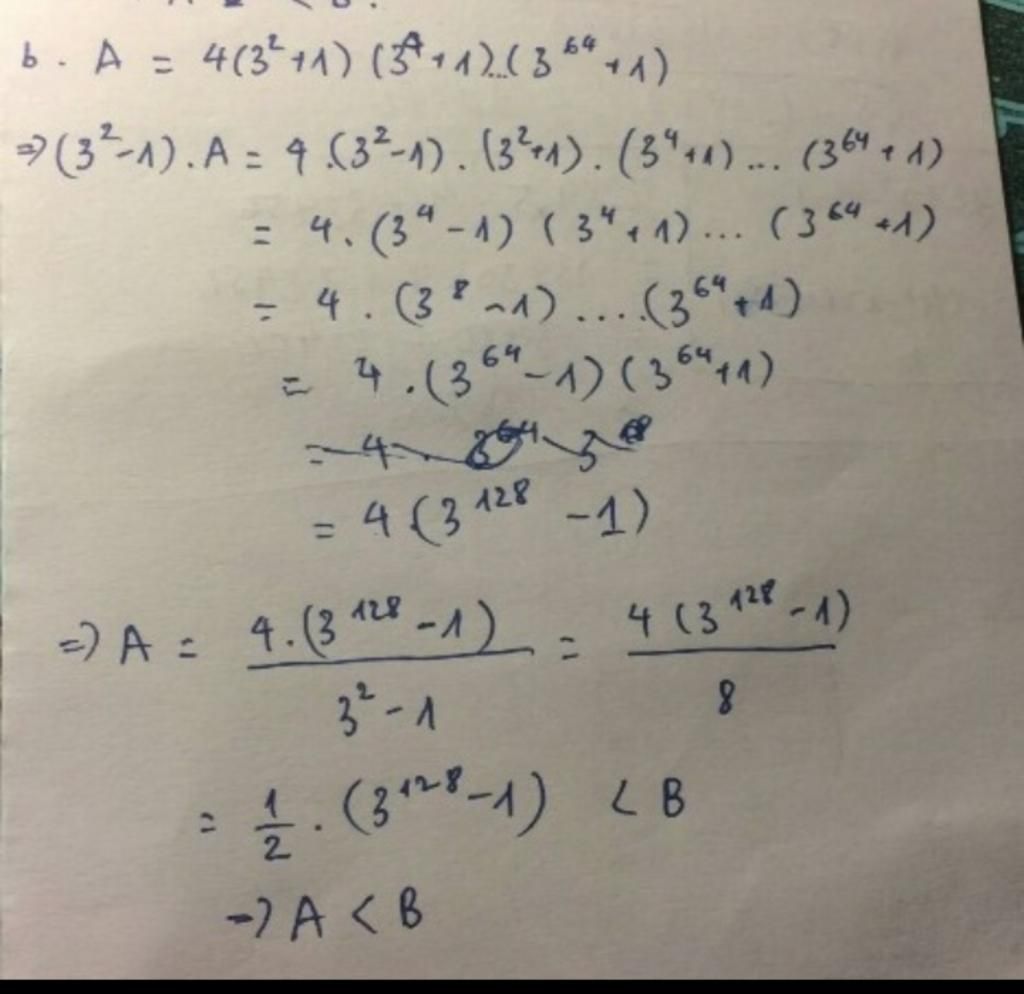 b. A = 4(3²+1)(3⁴+1)...(3⁶⁴+1)
⇒(3²-1).A = 4.(3²-1).(3²+1).(3⁴+1)...(3⁶⁴+1)
= 4.(3⁴-1)(3⁴+1)...(3⁶⁴+1)
= 4.(3⁸-1)....(3⁶⁴+1)
= 4.(3⁶⁴-1)(3⁶⁴+1)
= 4(3¹²⁸-1)
⇒ A = 4.(3¹²⁸-1) / 3²-1 = 4(3¹²⁸-1) / 8
= 1/2.(3¹²⁸-1) < B
⇒ A < B